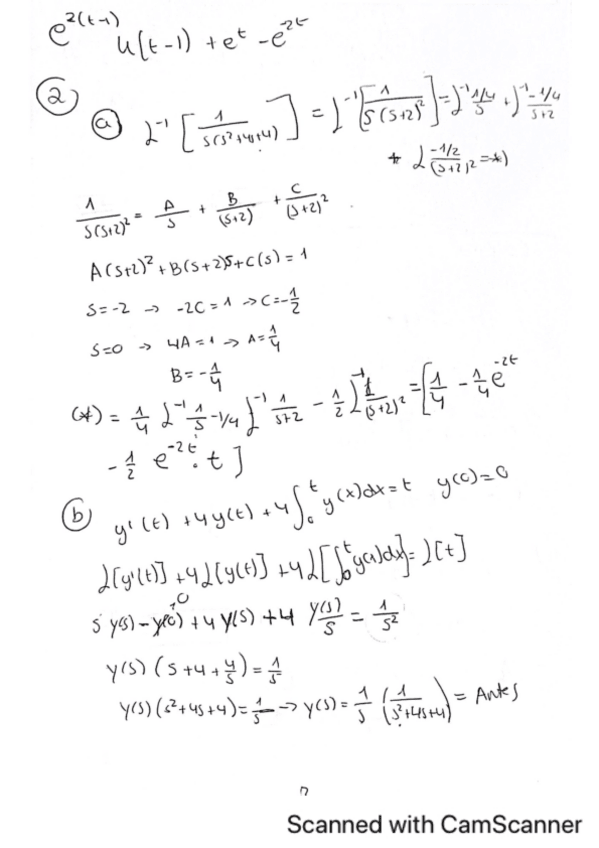 e^{2(t-1)} u(t-1) + e^t - e^{2t}
② ⓐ ℒ^{-1} [ 1/(s(s²+4s+4)) ] = ℒ^{-1} [ 1/(s(s+2)²) ] = ℒ^{-1} (1/4)/s + ℒ^{-1} (-1/4)/(s+2)
+ ℒ (-1/2)/(s+2)² = *)
1/(s(s+2)²) = A/s + B/(s+2) + C/(s+2)²
A(s+2)² + B(s+2)s + C(s) = 1
s=-2 → -2C = 1 → C = -1/2
s=0 → 4A = 1 → A = 1/4
B = -1/4
(*) = 1/4 ℒ^{-1} 1/s - 1/4 ℒ^{-1} 1/(s+2) - 1/2 ℒ^{-1} 1/(s+2)² = [ 1/4 - 1/4 e^{-2t}
- 1/2 e^{-2t} · t ]
ⓑ y'(t) + 4y(t) + 4∫₀^t y(x)dx = t y(0)=0
ℒ[y'(t)] + 4ℒ[y(t)] + 4ℒ[∫₀^t y(x)dx] = ℒ[t]
s y(s) - y(0) + 4 y(s) + 4 y(s)/s = 1/s²
0
y(s) (s + 4 + 4/s) = 1/s²
y(s)(s²+4s+4) = 1/s → y(s) = 1/s (1/(s²+4s+4)) = Antes
Scanned with CamScanner